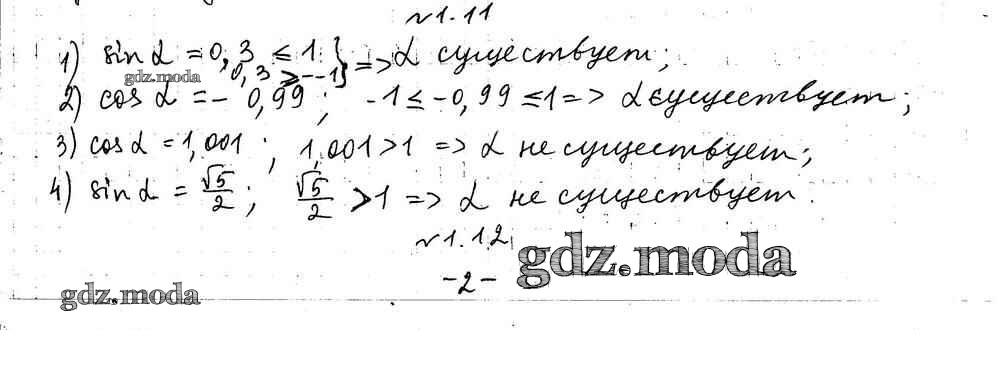 №1.11
1) sin α = 0,3 ≤ 1 } => α существует;
gdz.moda 0,3 ≥ -1
2) cos α = - 0,99 ; -1 ≤ -0,99 ≤ 1 => α существует;
3) cos α = 1,001 ; 1,001 > 1 => α не существует;
4) sin α = √5/2 ; √5/2 > 1 => α не существует.
№1.12
gdz.moda
-2-
gdz.moda